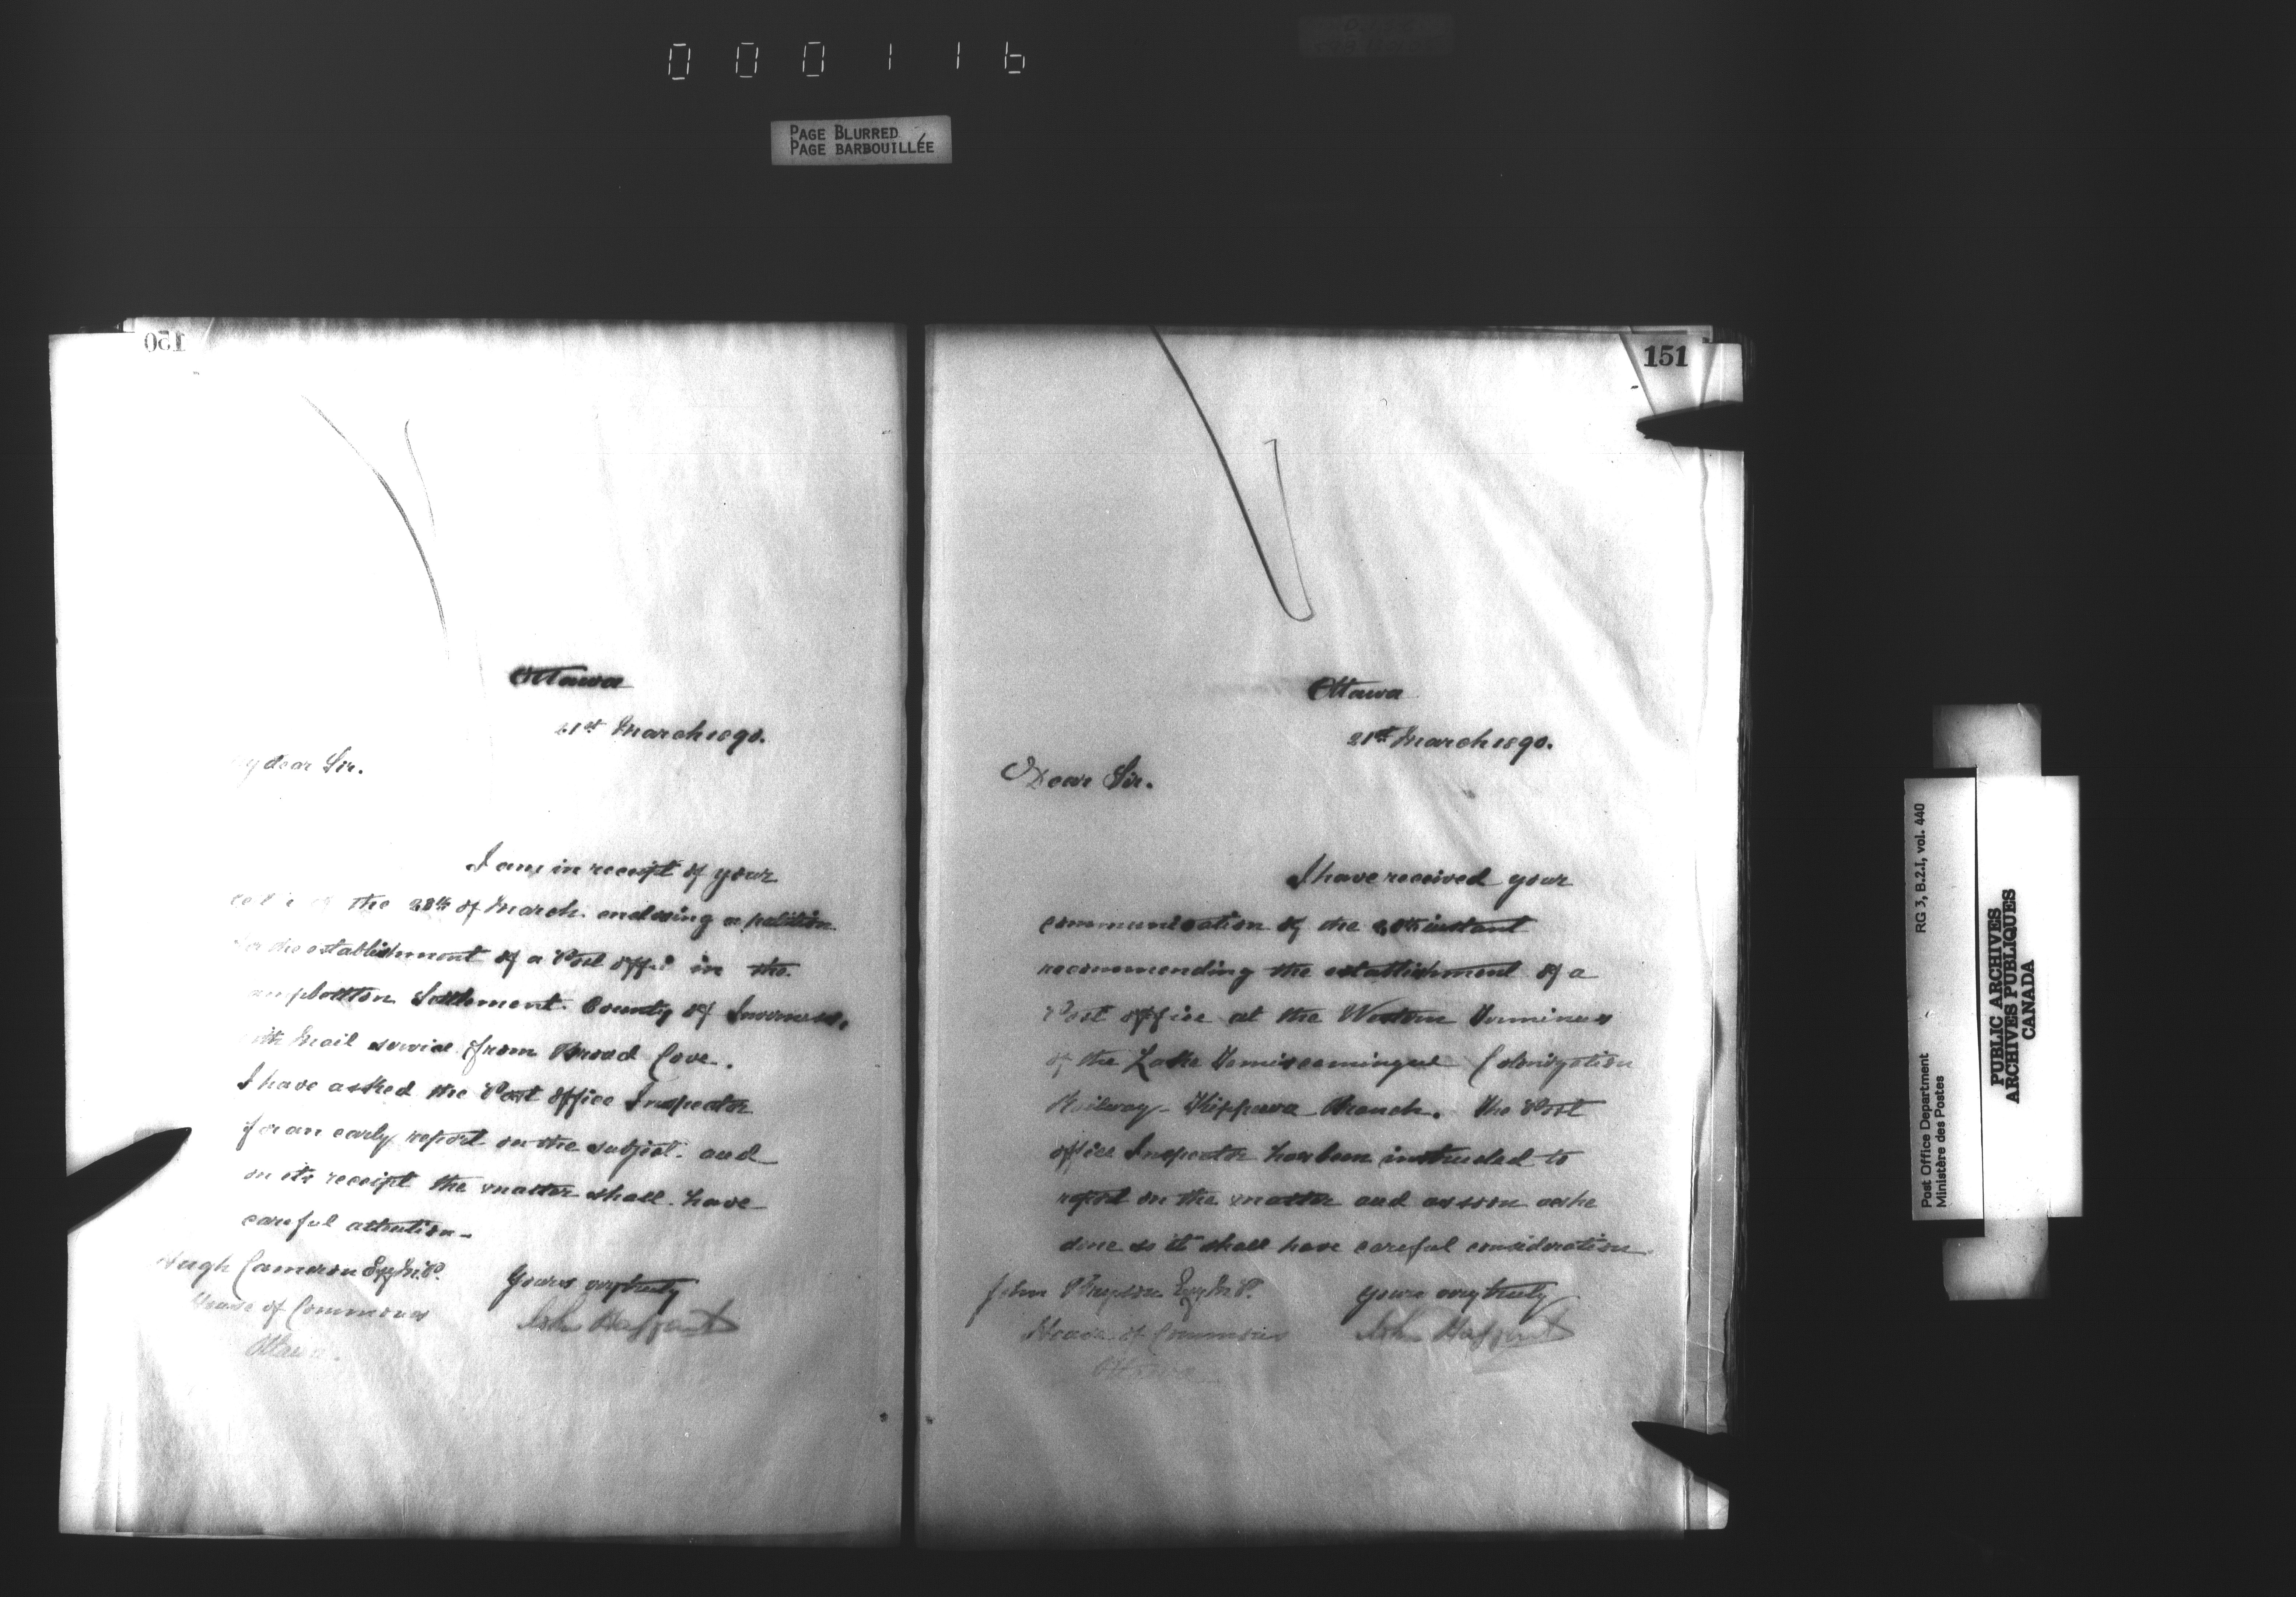 000116
PAGE BLURRED
PAGE BARBOUILLÉE
150
Ottawa
21st March 1890.
My dear Sir.
I am in receipt of your
the 20th of March enclosing a petition
for the establishment of a Post Office in the
Campbellton Settlement. County of Inverness,
with Mail service from Broad Cove.
I have asked the Post Office Inspector
for an early report on the subject. and
on its receipt the matter shall have
careful attention-
Hugh Cameron Esq M.P.
House of Commons
Ottawa.
Yours very truly
John Haggart
151
Ottawa
21st March 1890.
Dear Sir.
I have received your
communication of the 20th instant
recommending the establishment of a
Post Office at the Western Terminus
of the Lake Temiscamingue Colonization
Railway - Kippewa Branch. The Post
Office Inspector has been instructed to
report on the matter and as soon as he
done so it shall have careful consideration.
John Bryson Esq M.P.
House of Commons
Ottawa
Yours very truly
John Haggart
Post Office Department
Ministère des Postes
RG 3, B.2.1, vol. 440
PUBLIC ARCHIVES
ARCHIVES PUBLIQUES
CANADA